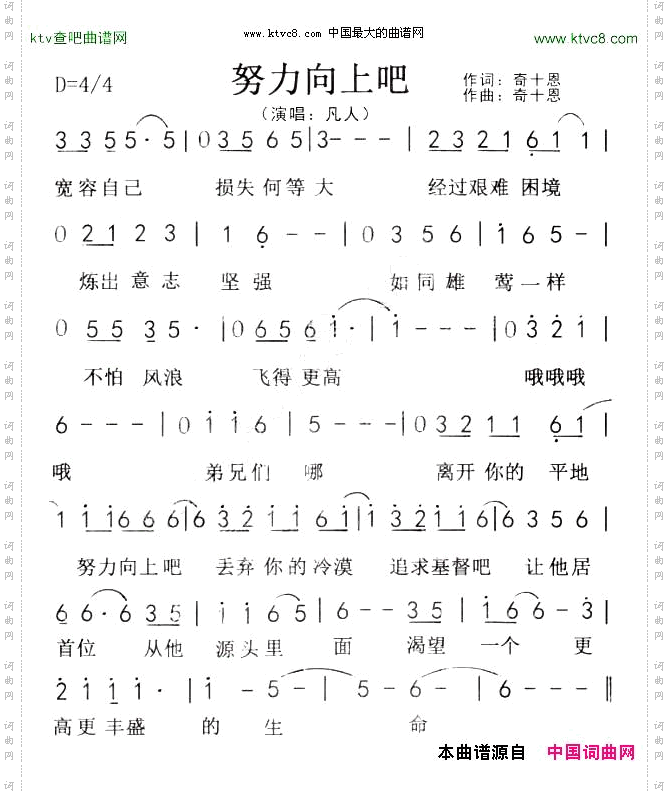 www.ktvc8.com 中国最大的曲谱网
ktv查吧曲谱网
www.ktvc8.com
努力向上吧
D=4/4
作词：奇十恩
作曲：奇十恩
（演唱：凡人）
3 3 5 5 5· 5| 0 3 5 6 5 |3- - - | 2 3 2 1 6 1 1|
宽容自己 损失何等大 经过艰难困境
0 2 1 2 3 | 1 6 - - | 0 3 5 6 |1 6 5 -|
炼出意志 坚强 如同雄莺一样
0 5 5 3 5 · |0 6 5 6 1· | 1 - - - |0 3 2 1|
不怕风浪 飞得更高 哦哦哦
6 - - - | 0 1 1 6 | 5 - - - |0 3 2 1 1 6 1|
哦 弟兄们 哪 离开你的 平地
1 1 1 6 6 6 |6 3 2 1 1 6 1|1 3 2 1 1 6 |6 5 3 5 6|
努力向上吧 丢弃你的冷漠 追求基督吧 让他居
6 6 · 6 3 5 |1 1 1 6 5 | 6 - - 3 5 | 1 6 6 - 3|
首位 从他 源头里 面 渴望 一个 更
2 1 1 1· | 1 - 5 - | 5 - 6 - | 6 - - - ||
高更丰盛 的 生 命
本曲谱源自 中国词曲网
词曲网